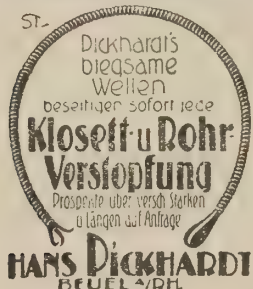 ST-
Dickhardt's
biegsame
Wellen
beseitigen sofort jede
Klosett- u Rohr-
Verstopfung
Prospekte über versch Stärken
u Längen auf Anfrage
HANS DICKHARDT
BEUEL a/RH.